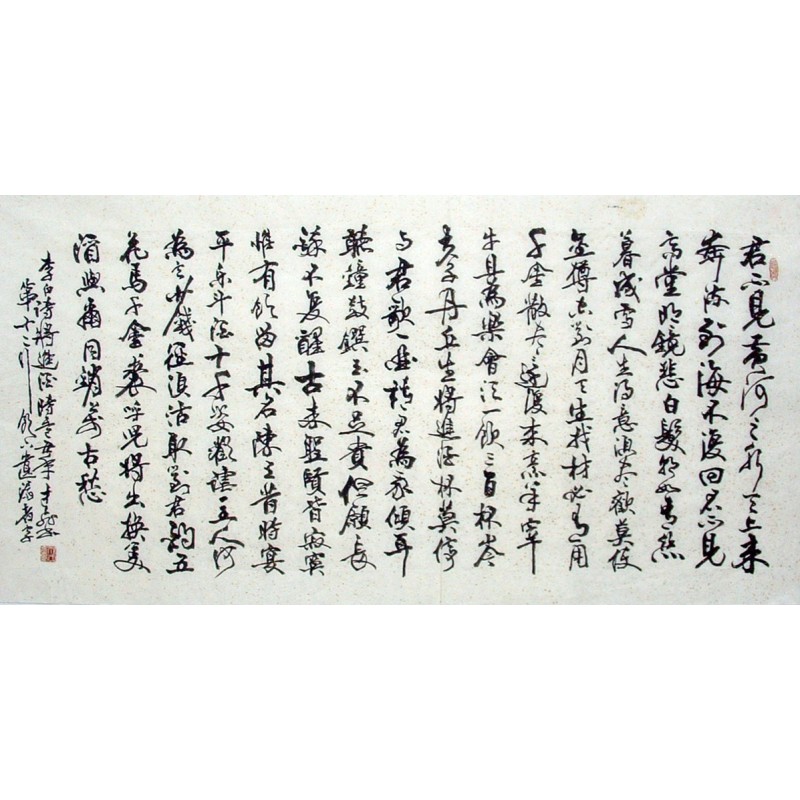 君不見黃河之水天上來
奔流到海不復回君不見
高堂明鏡悲白髮朝如青絲
暮成雪人生得意須盡歡莫使
金樽空對月天生我材必有用
千金散盡還復來烹羊宰
牛且為樂會須一飲三百杯岑
夫子丹丘生將進酒杯莫停
與君歌一曲請君為我傾耳
聽鐘鼓饌玉不足貴但願長
醉不復醒古來聖賢皆寂寞
惟有飲留其名陳王昔時宴
平樂斗酒十千恣歡謔主人何
為言少錢徑須沽取對君酌五
花馬千金裘呼兒將出換美
酒與爾同銷萬古愁
李白詩將進酒時在
第十二行飲下遺落者字